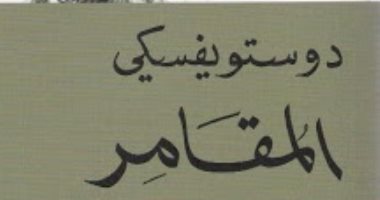 دوستويفسكي
المُقَامِر